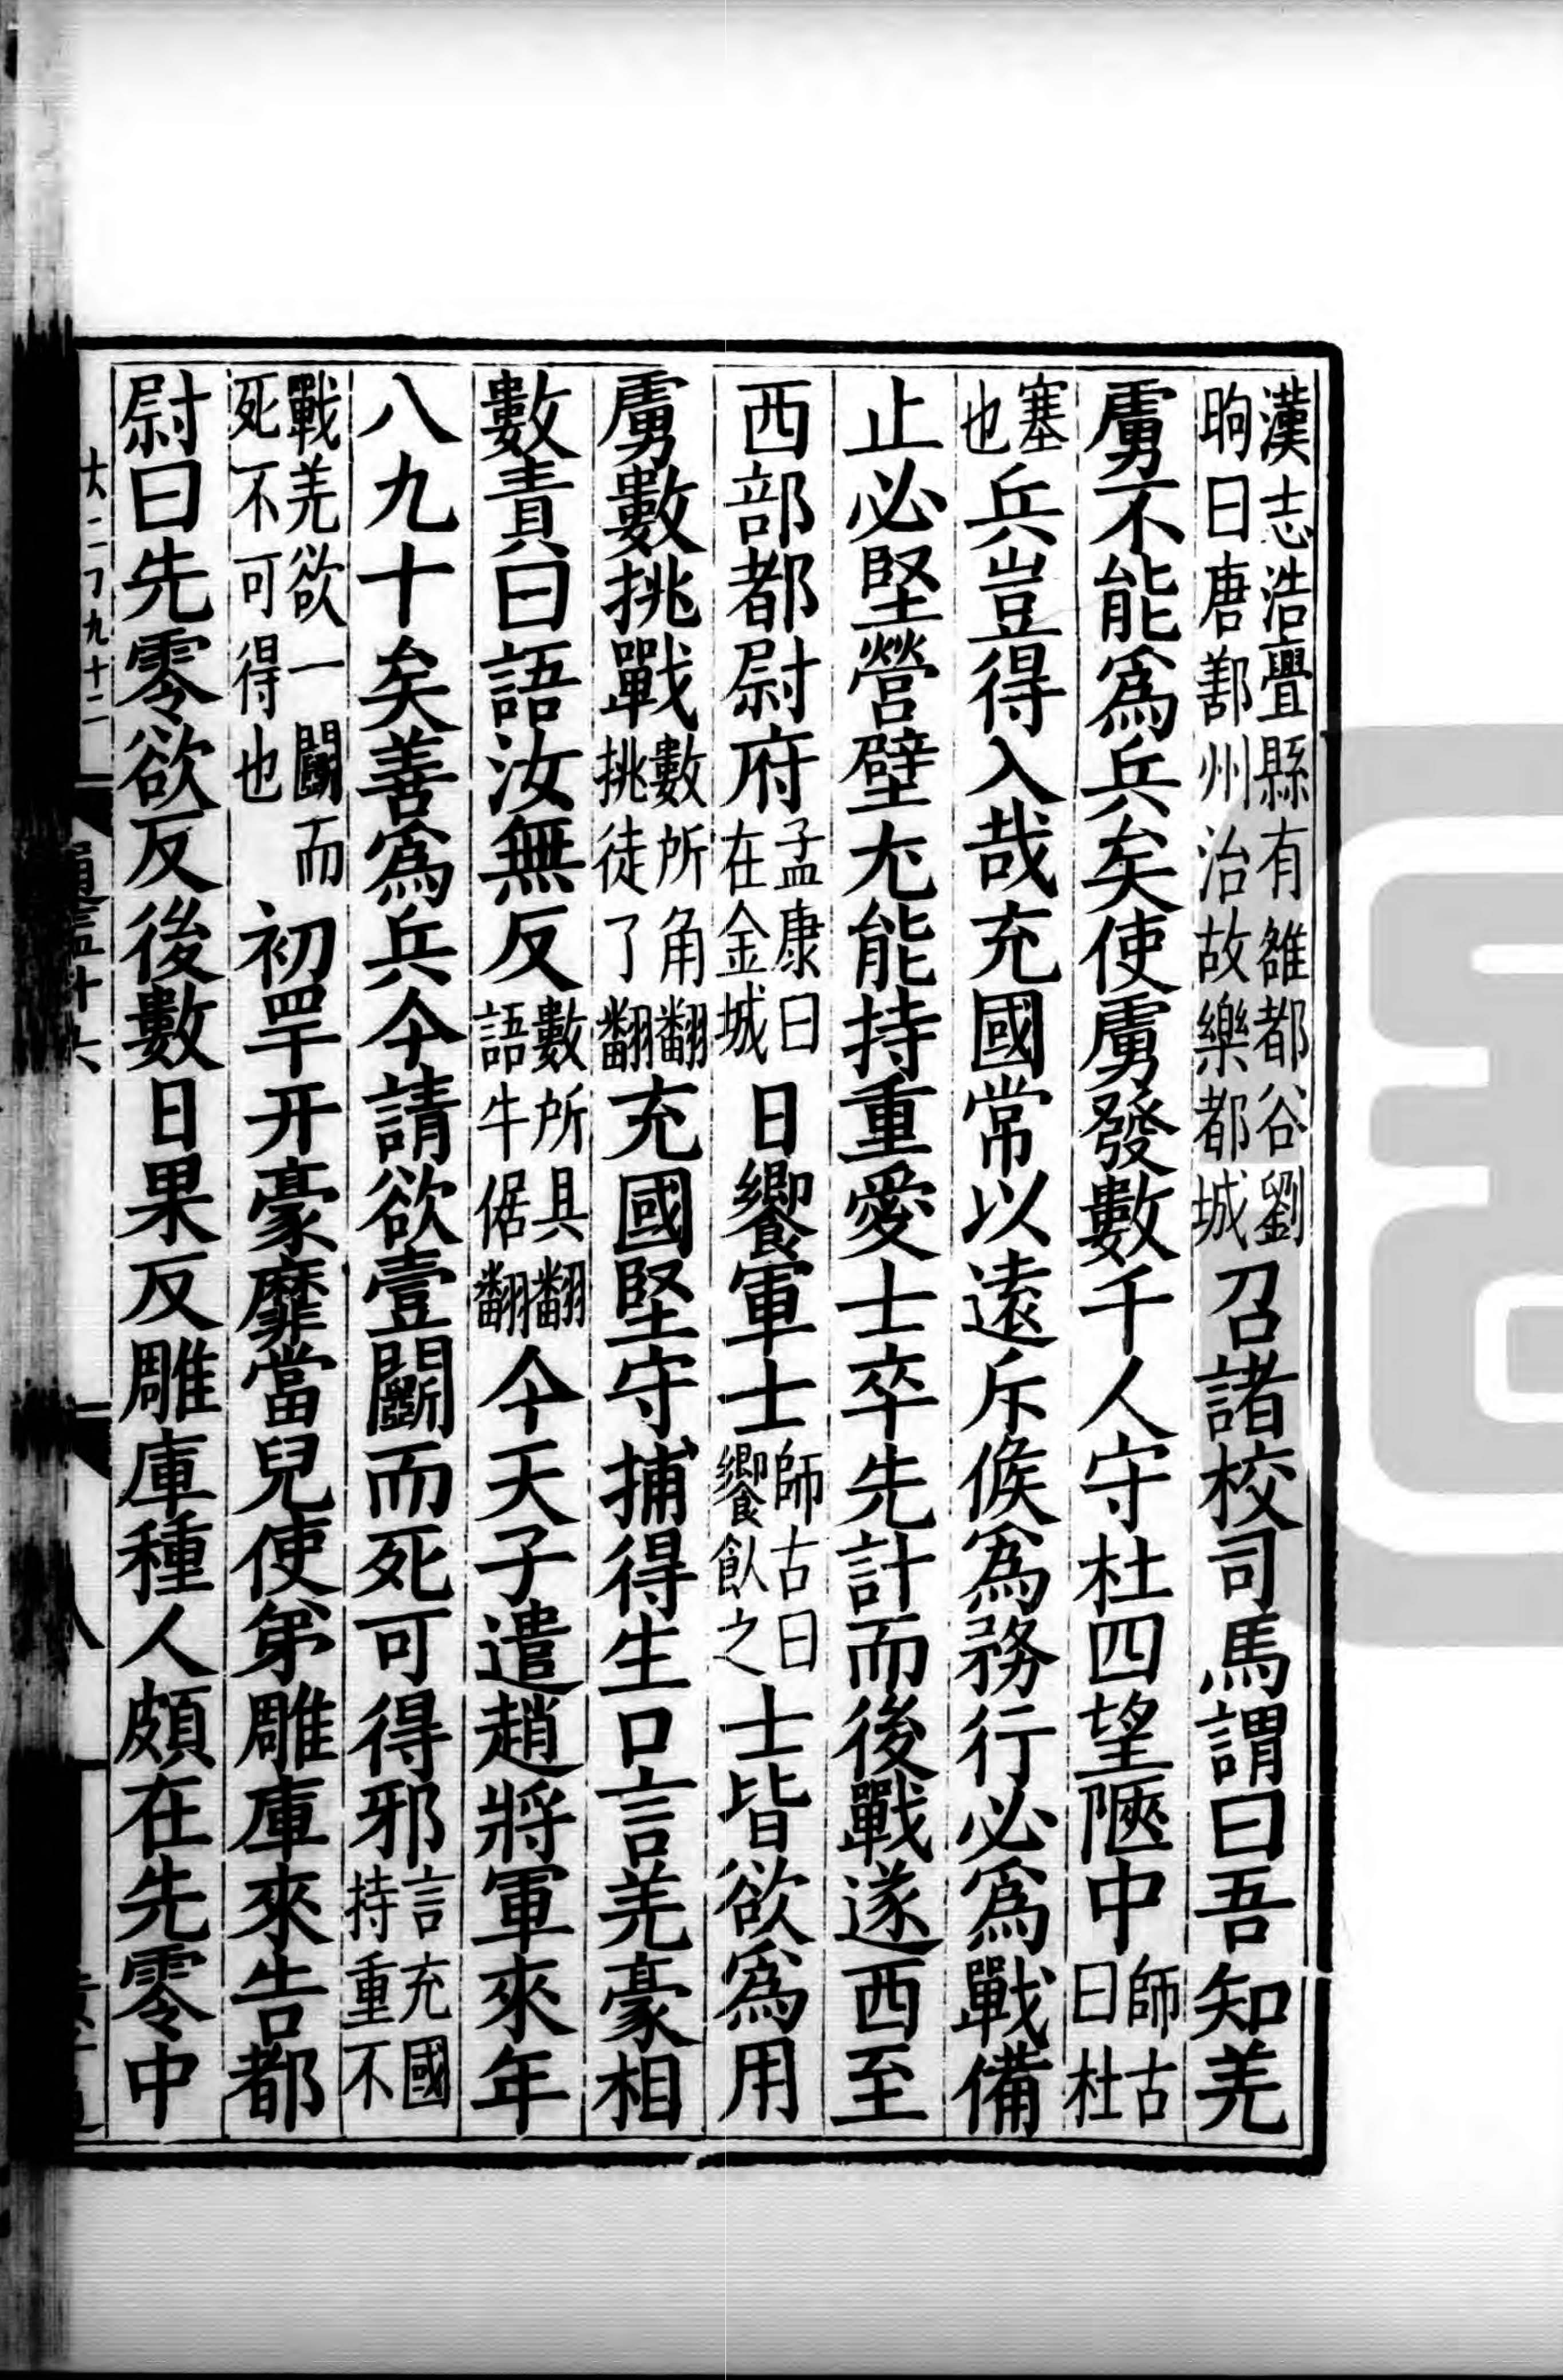 漢志浩亹縣有雒都谷劉昫曰唐鄯州治故樂都城召諸校司馬謂曰吾知羌
虜不能爲兵矣使虜發數千人守杜四望陿中師古曰杜
塞也兵豈得入哉充國常以遠斥候爲務行必爲戰備
止必堅營壁尢能持重愛士卒先計而後戰遂西至
西部都尉府孟康曰在金城日饗軍士師古曰饗飤之士皆欲爲用
虜數挑戰數所角翻挑徒了翻充國堅守捕得生口言羌豪相
數責曰語汝無反數所具翻語牛倨翻今天子遣趙將軍來年
八九十矣善爲兵今請欲壹鬭而死可得邪言充國持重不
戰羌欲一鬭而死不可得也初䍐幵豪靡當兒使弟雕庫來告都
尉曰先零欲反後數日果反雕庫種人頗在先零中